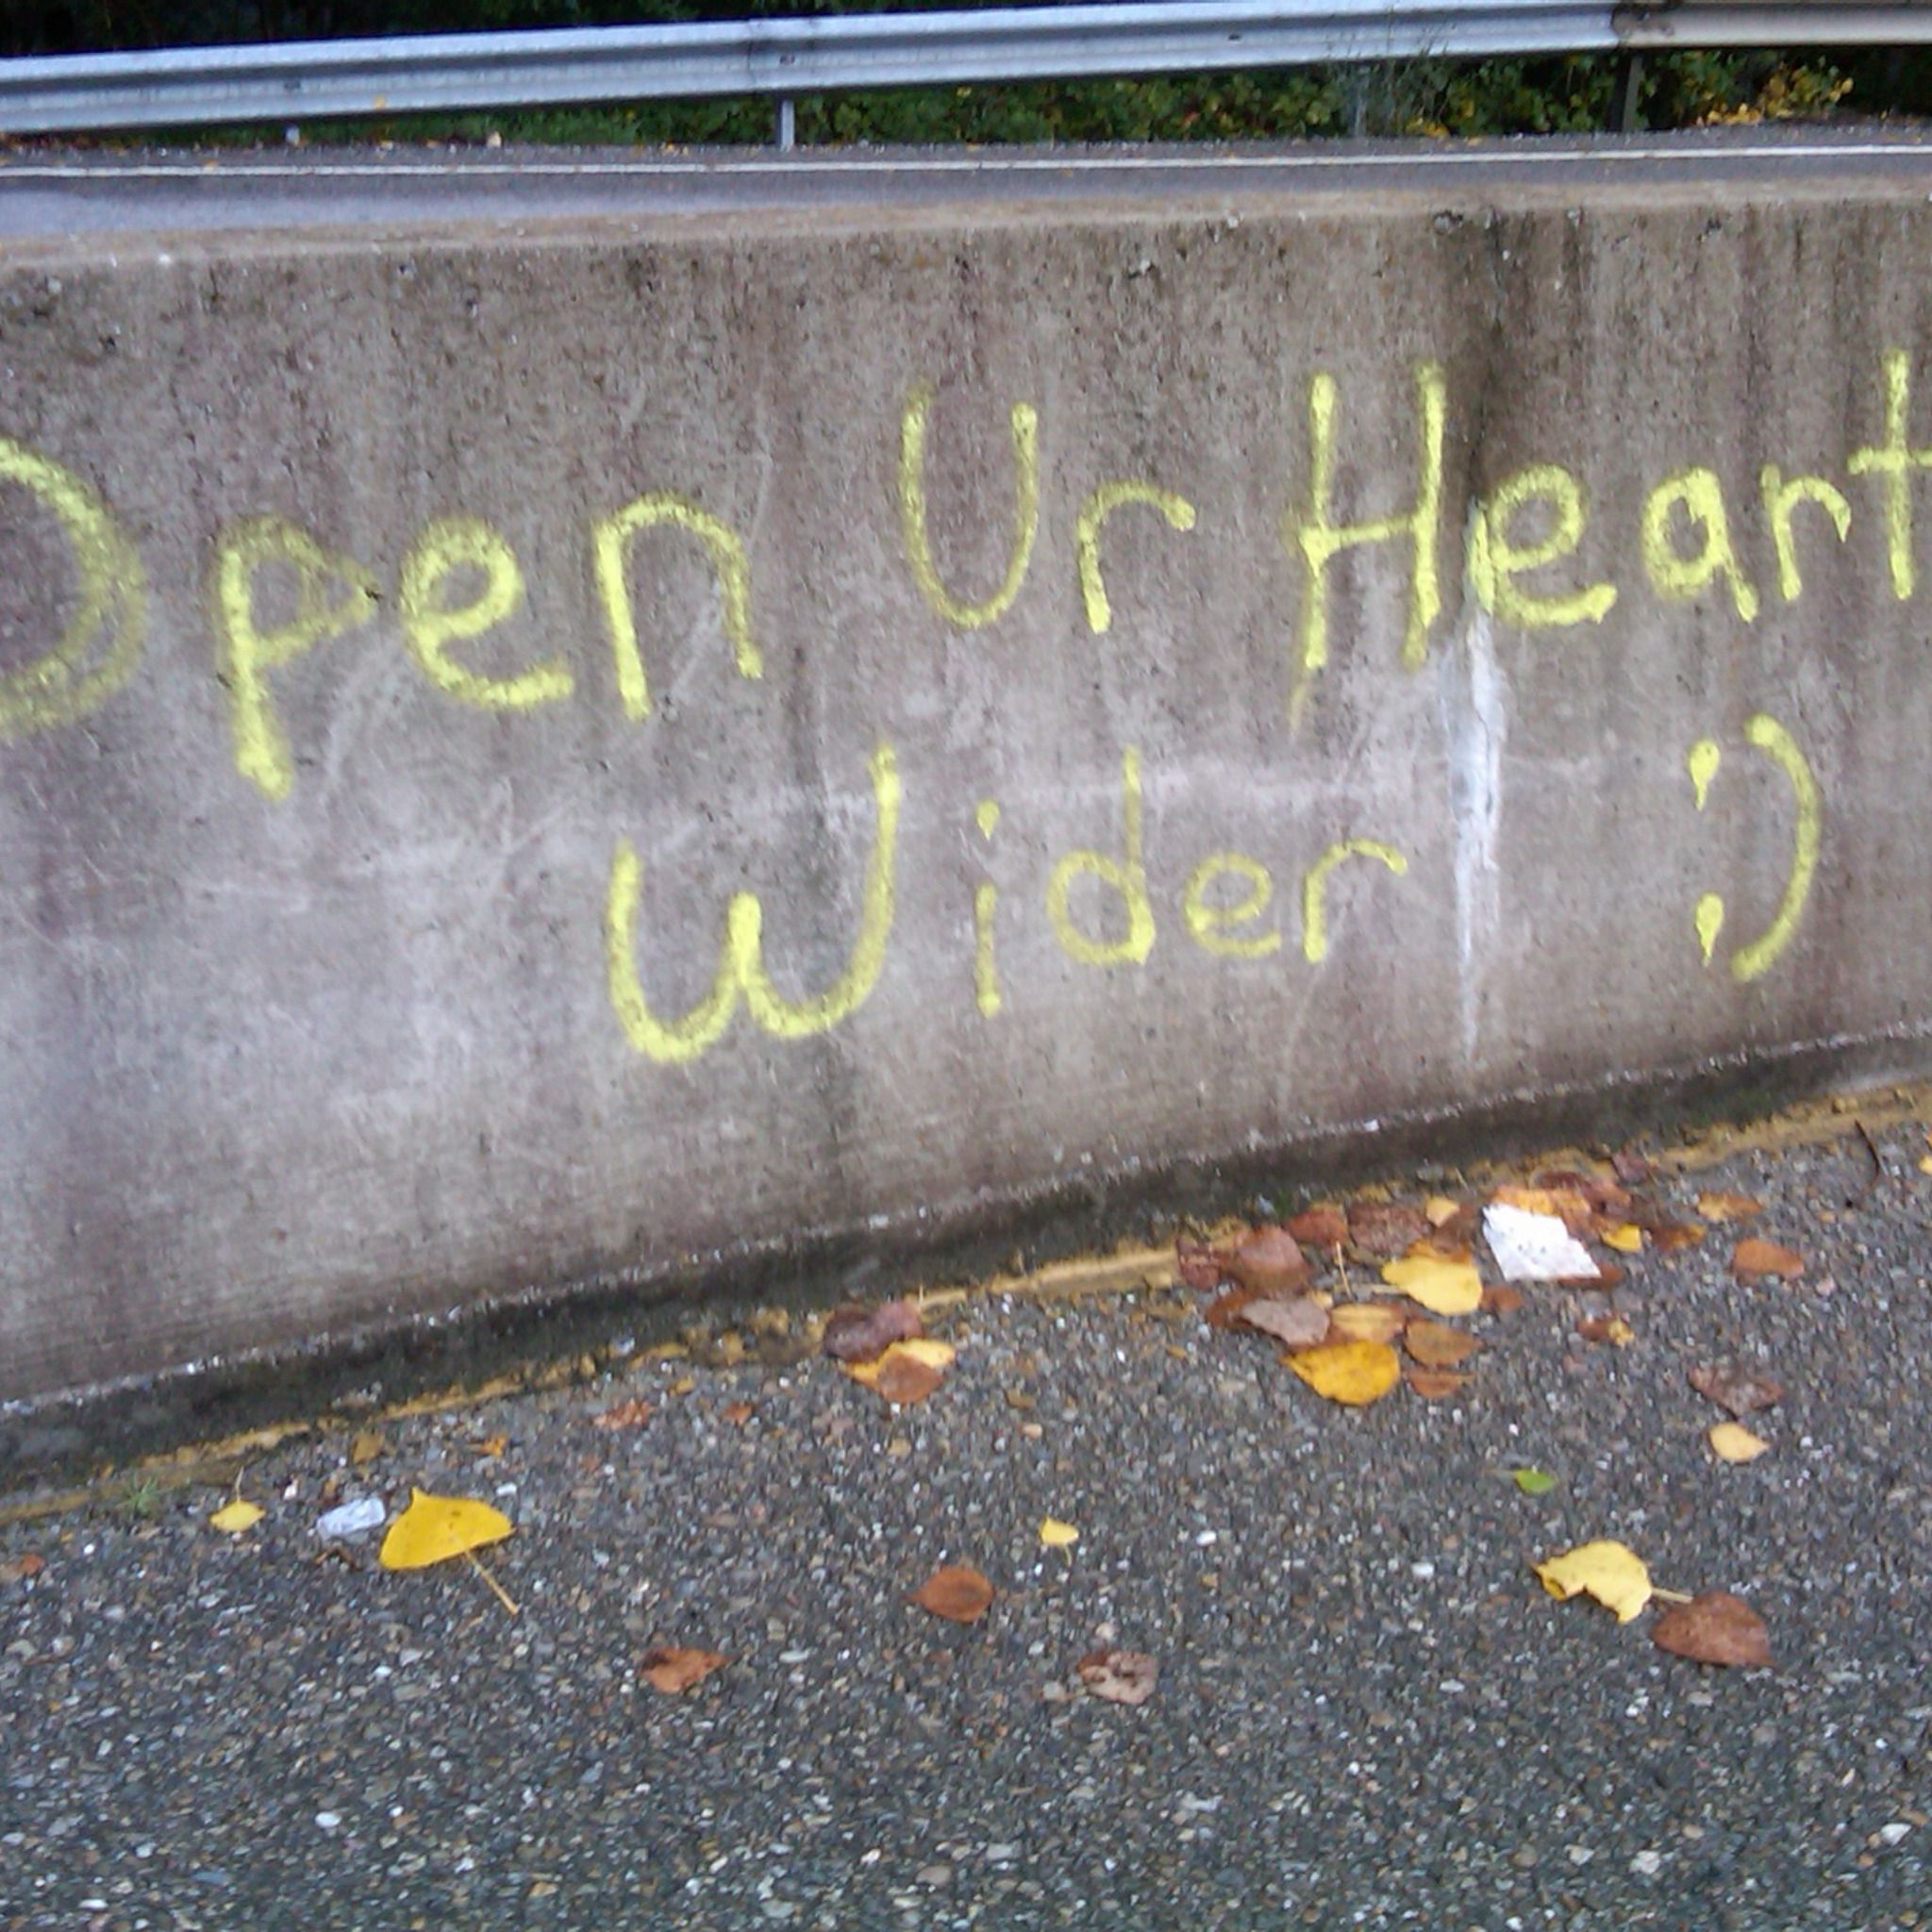 Open Ur Heart
Wider :)